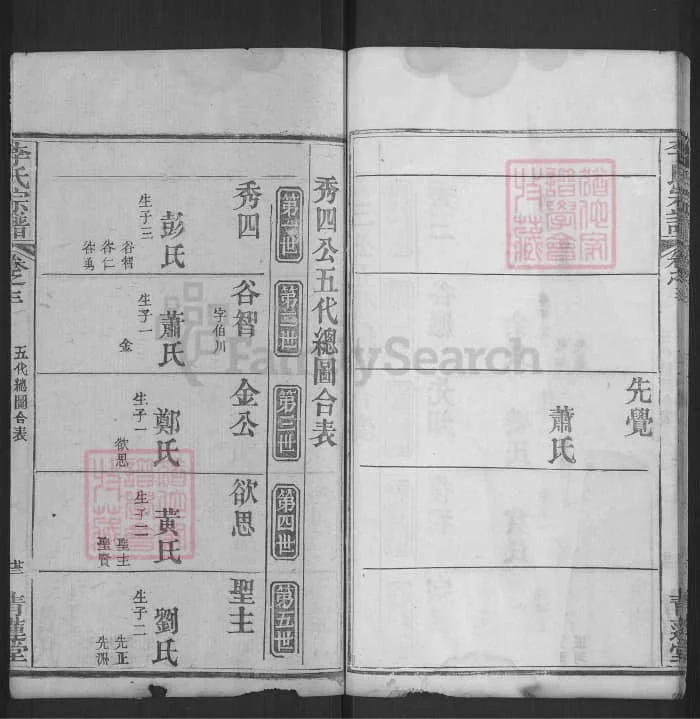 先覺
蕭氏
秀四公五代總圖合表
第一世
秀四
彭氏
生子三
谷智
谷仁
谷勇
第二世
谷智
字伯川
蕭氏
生子一
金
第三世
金公
鄭氏
生子一
欲思
第四世
欲思
黃氏
生子二
聖主
聖賢
第五世
聖主
劉氏
生子二
先正
先洲
李氏宗譜
卷之三
五代總圖合表
青蓮堂
FamilySearch